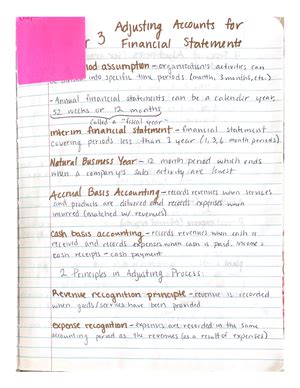 Adjusting Accounts for
r 3 Financial Statements
od assumption - organization's activities can
into specific time periods (month, 3 months, etc.)
- Annual financial statements can be a calendar year,
52 weeks or 12 months
called a "fiscal year"
Interim financial statement - financial statement
covering periods less than 1 year (1, 3, 6 month periods)
Natural Business Year - 12 month period which ends
when a company's sales activity are lowest
Accrual Basis Accounting - records revenues when services
and products are delivered and records expenses when
incurred (matched w/ revenues)
Cash basis accounting - records revenues when cash is
received and records expenses when cash is paid. Income =
cash receipts - cash payment
2 Principles in Adjusting Process:
Revenue recognition principle - revenue is recorded
when goods/services have been provided
Expense recognition - expenses are recorded in the same
accounting period as the revenues (as a result of expenses)